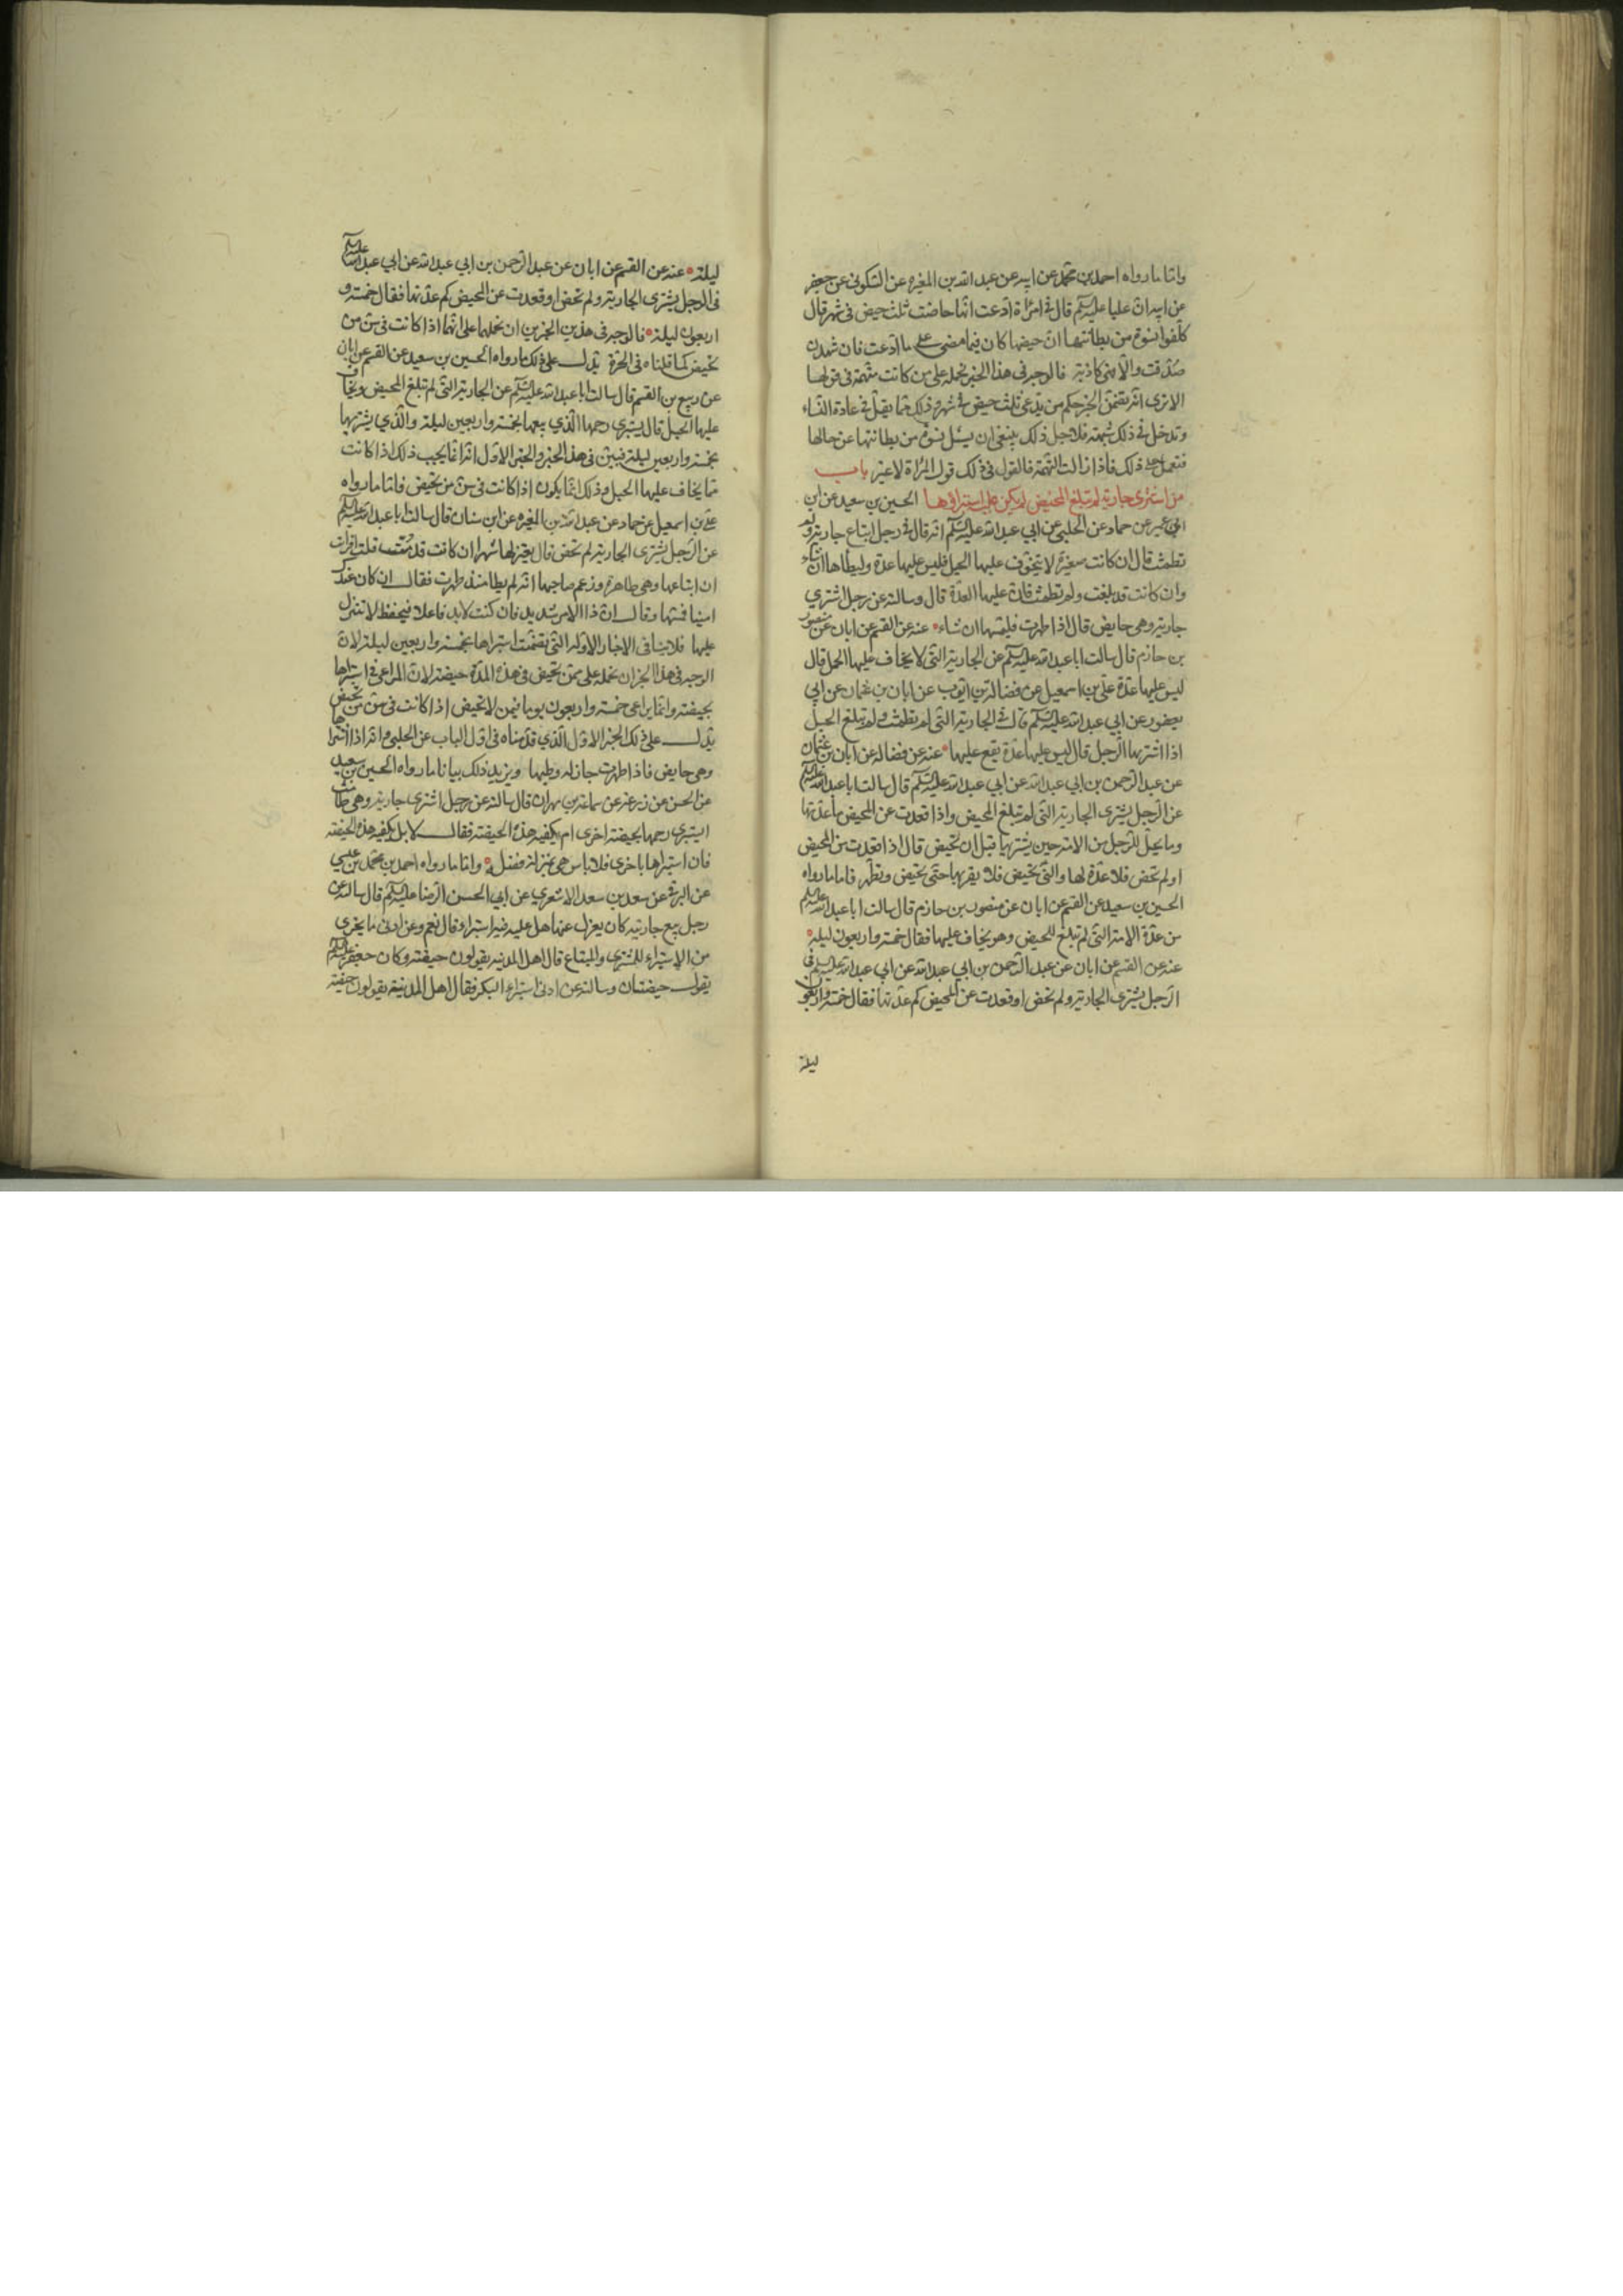 واما ما رواه احمد بن محمد عن ابيه عن عبد الله بن المغيرة عن السكونى عن جعفر
عن ابيه ان عليا عليه السلم قال فى امراة ادعت انها حاضت ثلث حيض فى شهر قال
كلفوا نسوة من بطانتها ان حيضها كان فيما مضى على ما ادعت فان شهدن
صدقت والا فهى كاذبة فالوجه فى هذا الخبر نحمله على من كانت متهمة فى قولها
الا ترى انه يتضمن الخبر حكم من يدعى ثلث حيض فى شهر وذلك مما يقل فى عادة النساء
وتدخل فى ذلك شبهة فلاجل ذلك ينبغى ان يسئل نسوة من بطانتها عن حالها
فتعمل على ذلك فاذا زالت التهمة فالقول فى ذلك قول المراة لا غير باب
من اشترى جارية لم تبلغ المحيض لم يكن عليه استبراؤها الحسين بن سعيد عن ابن
ابى عمير عن حماد عن الحلبى عن ابي عبد الله عليه السلم انه قال فى رجل ابتاع جارية ولم
تطمث قال ان كانت صغيرة لا يتخوف عليها الحبل فليس عليها عدة وليطأها ان شاء
وان كانت قد بلغت ولم تطمث فان عليها العدة قال وسالته عن رجل اشترى
جارية وهى حايض قال اذا طهرت فليمسها ان شاء عنه عن القسم عن ابان عن منصور
بن حازم قال سالت ابا عبد الله عليه السلم عن الجارية التى لا يخاف عليها الحمل قال
ليس عليها عدة على بن اسمعيل عن فضالة بن ايوب عن ابان بن عثمان عن ابي
يعفور عن ابي عبد الله عليه السلم قال فى الجارية التى لم تطمث ولم تبلغ الحبل
اذا اشتريها الرجل قال ليس عليها عدة يقع عليها عنه عن فضالة عن ابان بن عثمان
عن عبد الرحمن بن ابي عبد الله عن ابي عبد الله عليه السلم قال سالت ابا عبد الله عليه السلم
عن الرجل يشترى الجارية التى لم تبلغ المحيض واذا قعدت عن المحيض ما عدتها
وما يحل للرجل من الامة حين يشتريها قبل ان تحيض قال اذا قعدت من المحيض
او لم تحض فلا عدة لها والتى تحيض فلا يقربها حتى تحيض وتطهر فاما ما رواه
الحسين بن سعيد عن القسم عن ابان عن منصور بن حازم قال سالت ابا عبد الله عليه السلم
من عدة الامة التى لم تبلغ المحيض وهو يخاف عليها فقال خمسة واربعون ليلة
عنه عن القسم عن ابان عن عبد الرحمن بن ابي عبد الله عن ابي عبد الله عليه السلم فى
الرجل يشترى الجارية ولم تحض او قعدت عن المحيض كم عدتها فقال خمسة واربعون
ليلة
ليلة عنه عن القسم عن ابان عن عبد الرحمن بن ابي عبد الله عن ابي عبد الله عليه السلم
فى الرجل يشترى الجارية ولم تحض او قعدت عن المحيض كم عدتها فقال خمسة و
اربعون ليلة فالوجه فى هذين الخبرين ان نحملهما على انها اذا كانت فى سن من
تحيض كما قلناه فى الحرة يدل على ذلك ما رواه الحسين بن سعيد عن القسم عن ابان
عن ربيع بن القسم قال سالت ابا عبد الله عليه السلم عن الجارية التى لم تبلغ المحيض ويخاف
عليها الحبل قال يستبرى رحمها الذي يبيعها بخمسة واربعين ليلة والذي يشتريها
بخمسة واربعين ليلة فبين فى هذا الخبر والخبر الاول انه انما يجب ذلك اذا كانت
مما يخاف عليها الحبل وذلك انما يكون اذا كانت فى سن من تحيض فاما ما رواه
على بن اسمعيل عن حماد عن عبد الله بن المغيرة عن ابن سنان قال سالت ابا عبد الله عليه السلم
عن الرجل يشترى الجارية لم تحض قال يعتزلها شهرا ان كانت قد مست قلت افرايت
ان ابتاعها وهى طاهرة وزعم صاحبها انه لم يطأ منذ طهرت فقال ان كان عندك
امينا فمسها وقال ان ذا الامر شديد فان كنت لا بد فاعلا فتحفظ لا تنزل
عليها فلا ينافى الاخبار الاولة التى تضمنت استبراها بخمسة واربعين ليلة لان
الوجه فى هذا الخبر ان نحمله على من تحيض فى هذه المدة حيضة لان المراعى فى استبراها
بحيضة وانما يراعى خمسة واربعون يوما فيمن لا تحيض اذا كانت فى سن من تحيض
يدل على ذلك الخبر الاول الذي قدمناه فى اول الباب عن الحلبى وانه اذا اشتراها
وهى حايض فاذا طهرت جاز له وطيها ويزيد ذلك بيانا ما رواه الحسين بن سعيد
عن الحسن عن زرعة عن سماعة بن مهران قال سالته عن رجل اشترى جارية وهى طامث
ايستبرى رحمها بحيضة اخرى ام يكفيه هذه الحيضة فقال لا بل يكفيه هذه الحيضة
فان استبراها باخرى فلا باس هى بمنزلة فضل واما ما رواه احمد بن محمد بن عيسي
عن البرقى عن سعد بن سعد الاشعري عن ابي الحسن الرضا عليه السلم قال سالته عن
رجل يبيع جارية كان يعزل عنها هل عليه فيها استبراء قال نعم وعن ادنى ما يجزى
من الاستبراء للمشترى والمبتاع قال اهل المدينة يقولون حيضة وكان جعفر عليه السلم
يقول حيضتان وسالته عن ادنى استبراء البكر فقال اهل المدينة يقولون حيضة